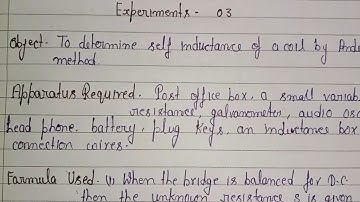 Experiments - 03
Object - To determine self inductance of a coil by Ande
method.
Apparatus Required - Post office box, a small variab
resistance, galvanometer, audio osc
head phone. battery, plug keys, an inductances box
connection wires.
Formula Used - (i) When the bridge is balanced for D.C.
then the unknown resistance s is given